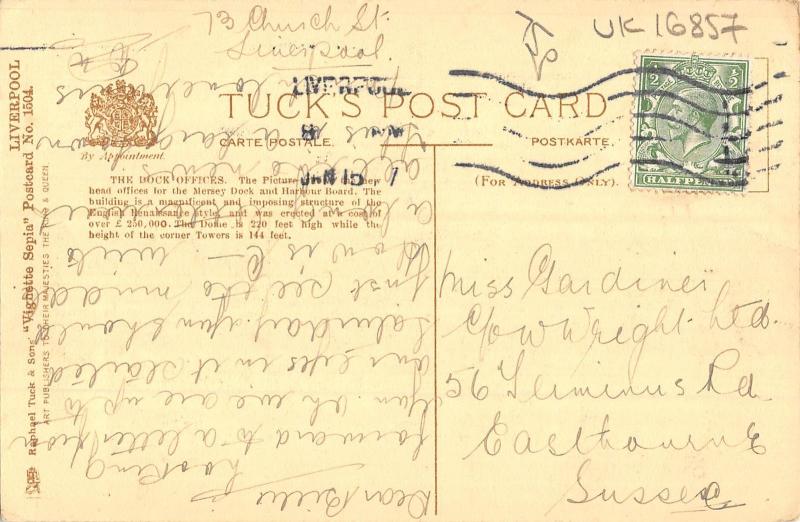 73 Church St.
Liverpool
UK 16857
LIVERPOOL
JAN 15
HALFPENNY
TUCK'S POST CARD
CARTE POSTALE.
POSTKARTE.
(FOR ADDRESS ONLY).
By Appointment.
THE DOCK OFFICES. The Picture new
head offices for the Mersey Dock and Harbour Board. The
building is a magnificent and imposing structure of the
English Renaissance style, and was erected at a cost of
over £ 250,000. The Dome is 220 feet high while the
height of the corner Towers is 144 feet.
LIVERPOOL
Raphael Tuck & Sons' "Vignette Sepia" Postcard No. 1504.
ART PUBLISHERS TO THEIR MAJESTIES THE KING & QUEEN.
Dear Billie
Looking
forward to a letter from
you. Oh we are up to
our eyes in it started
Saturday. You should
just see the mudd
How is
all the news
Miss Gardiner
C/o W Wright Ltd.
56 Terminus Rd
Eastbourne
Sussex